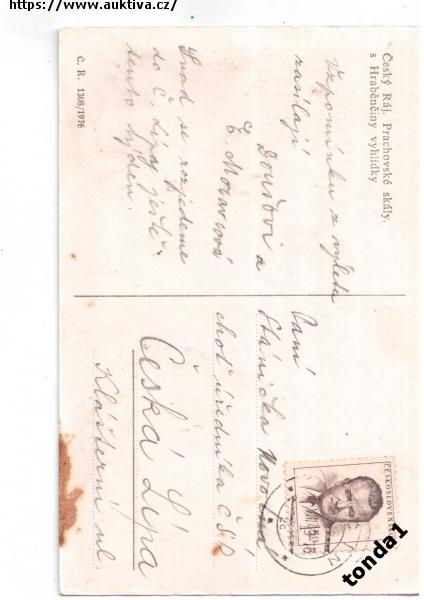 https://www.auktiva.cz/
Český Ráj. Prachovské skály.
s Hraběnčiny vyhlídky
Vzpomínku z výletu
zasílají
Doušovi a
E. Moravcová
Snad se rozjedeme
do Č. Lípy ještě
tento týden.
Č. R. 1308/1976
Paní
Stánička Novotná
choť úředníka ČSD
Česká Lípa
Klášterní ul
ČESKOSLOVENSKO
tonda1